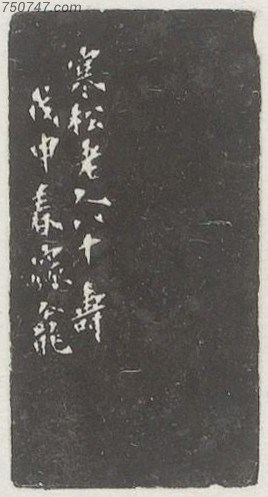 750747.com
寒松老人八十壽
戊申春龕